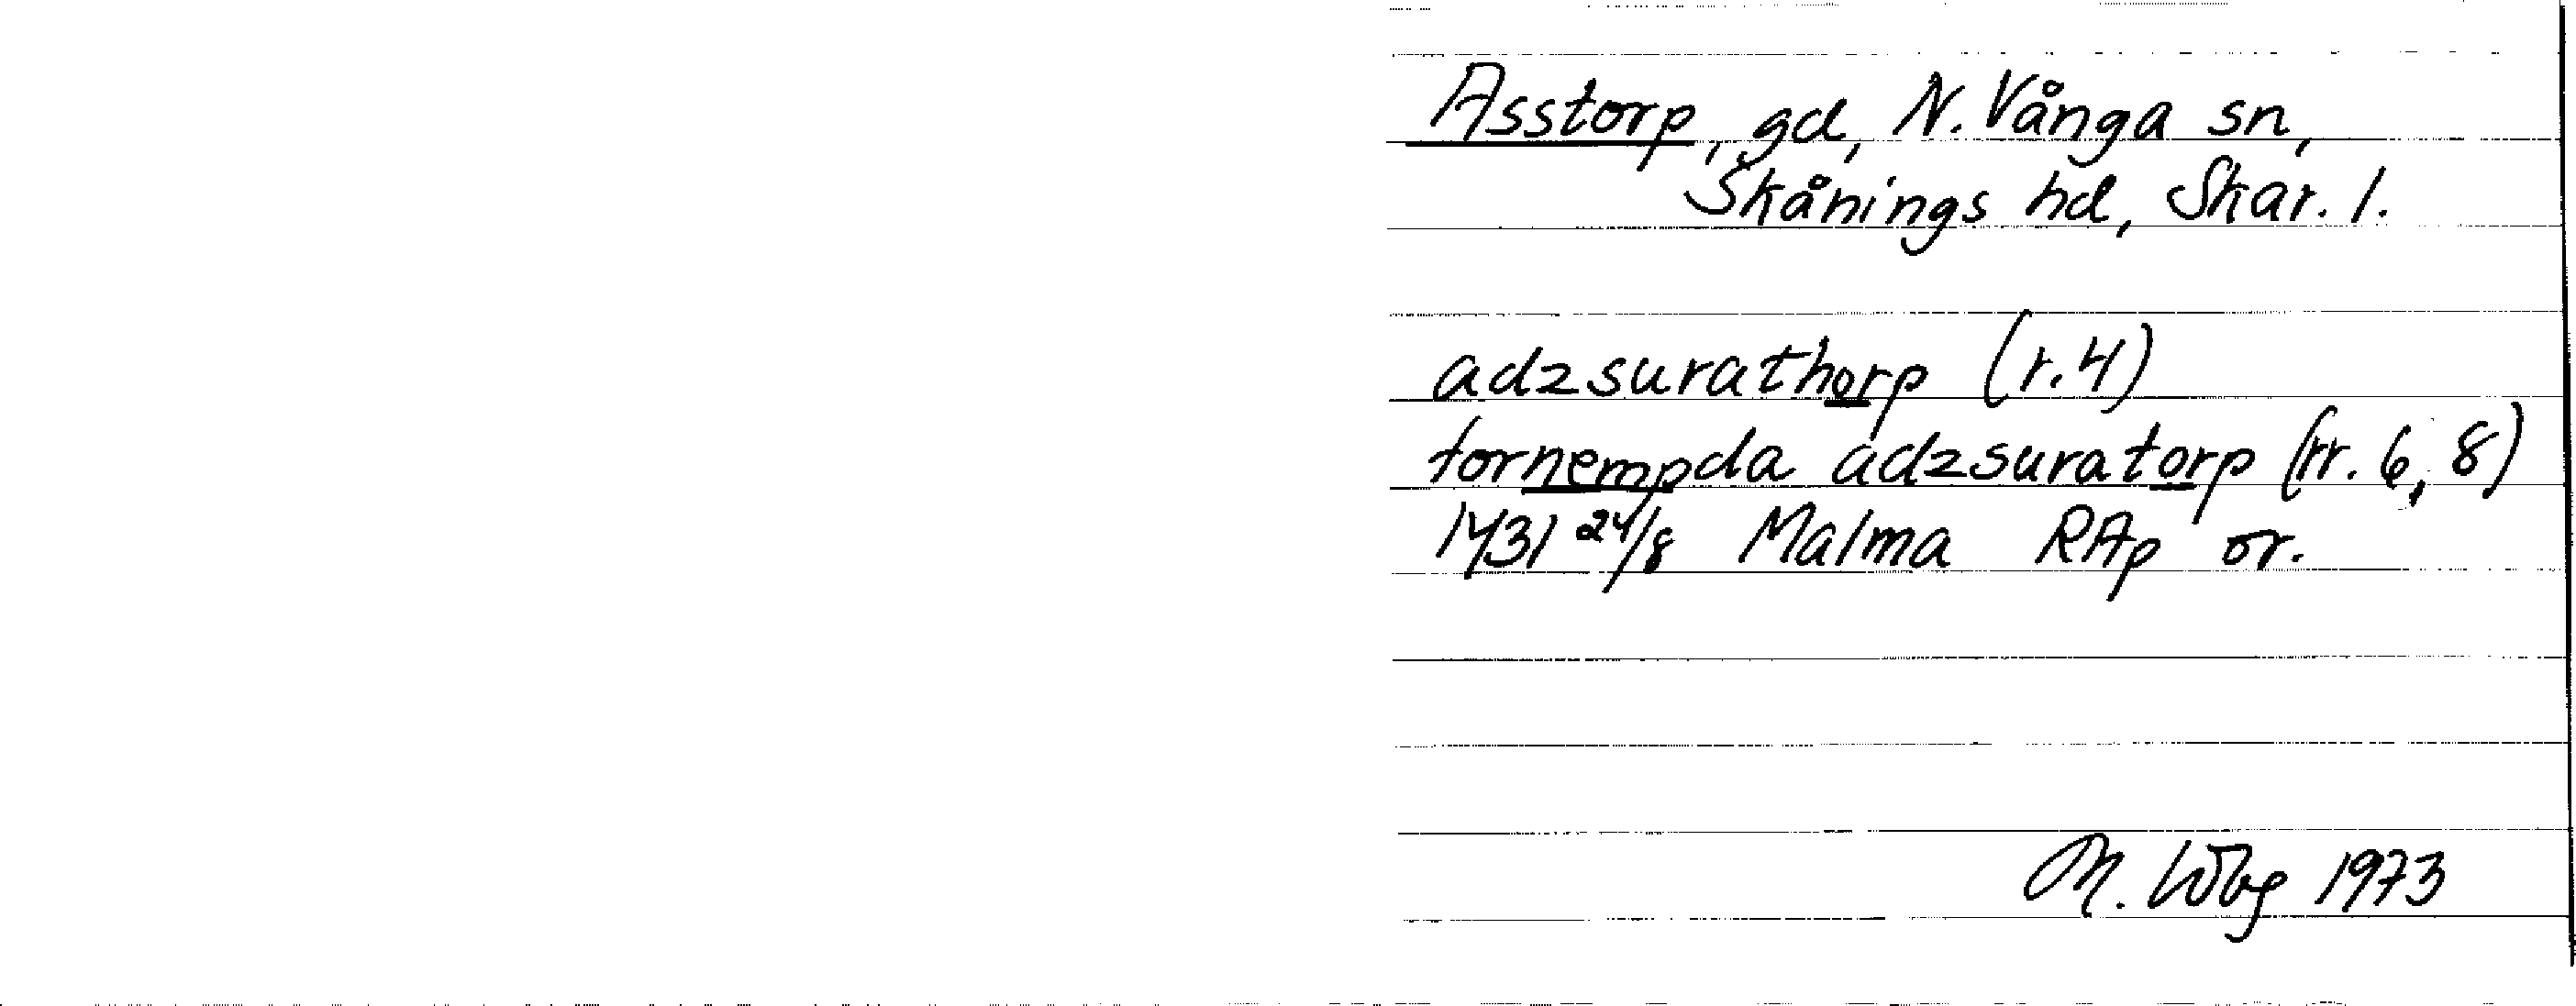 Asstorp, gd, N. Vånga sn,
Skånings hd, Skar. l.
adzsurathorp (r.4)
fornempda adzsuratorp (rr. 6, 8)
1431 24/8 Malma RAp or.
M. 1973